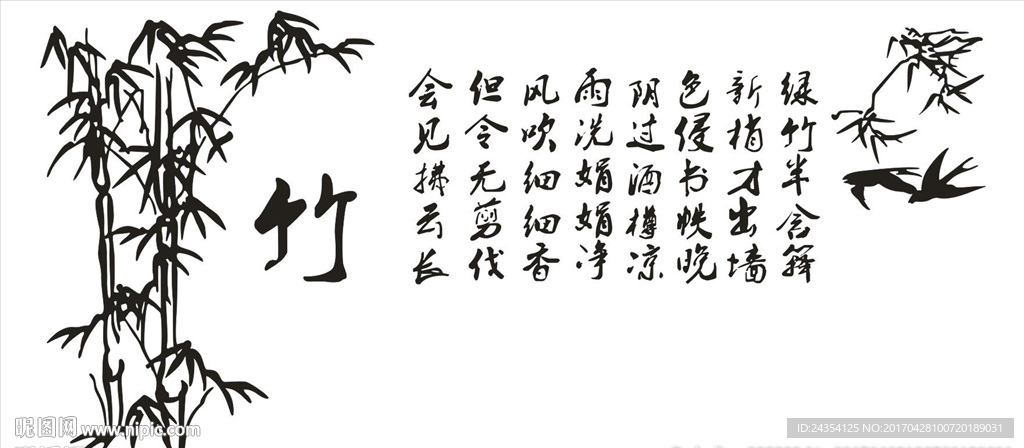 竹
绿竹半含箨
新梢才出墙
色侵书帙晚
阴过酒樽凉
雨洗娟娟净
风吹细细香
但令无剪伐
会见拂云长
昵图网
www.nipic.com
ID:24354125 NO:20170428100720189031